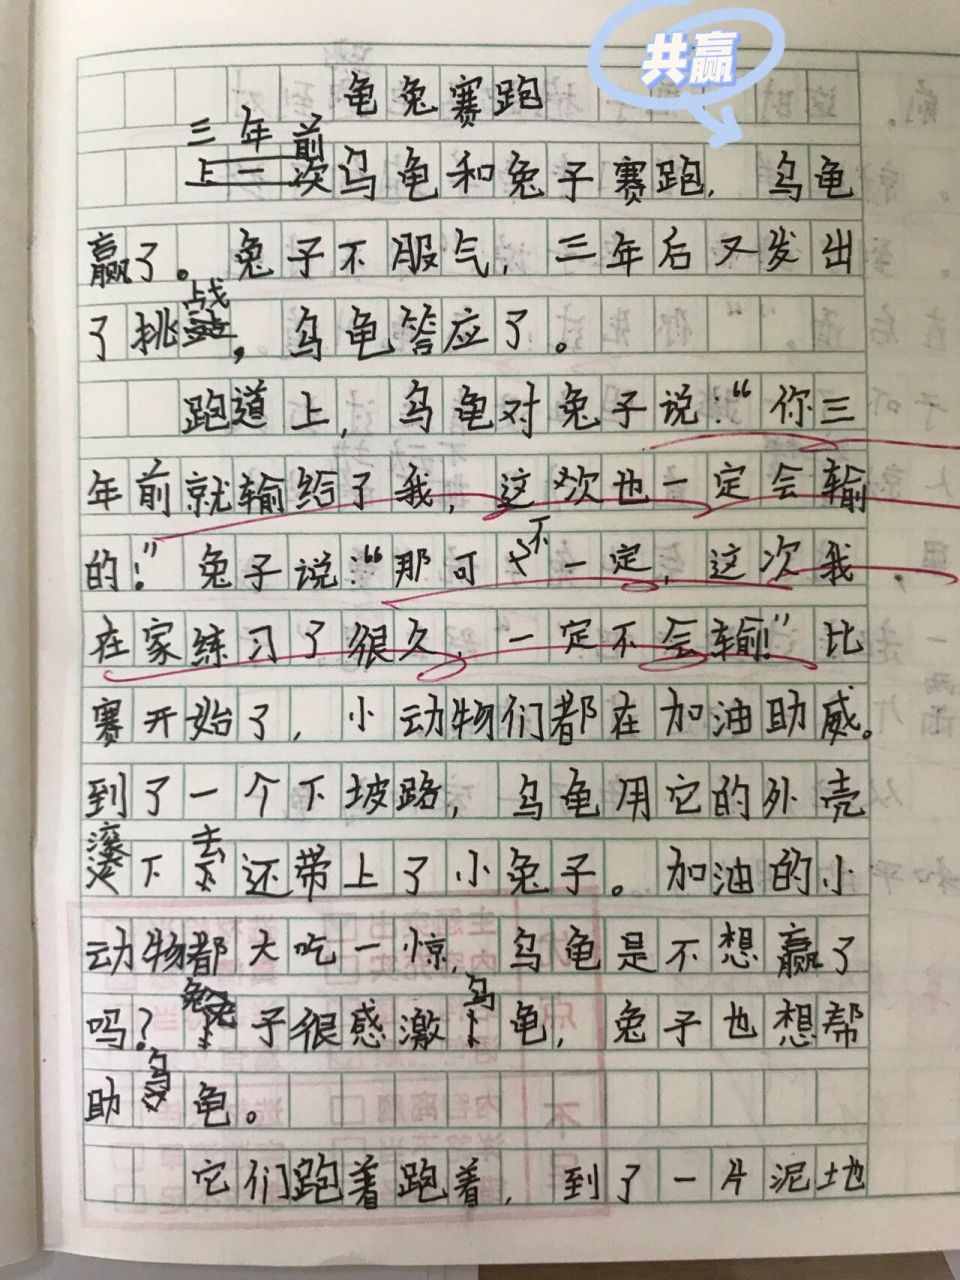 共赢
龟兔赛跑
三年前
上一次乌龟和兔子赛跑，乌龟
赢了。兔子不服气，三年后又发出
了挑战，乌龟答应了。
跑道上，乌龟对兔子说：“你三
年前就输给了我，这次也一定会输
的！”兔子说：“那可不一定，这次我
在家练习了很久，一定不会输！”比
赛开始了，小动物们都在加油助威。
到了一个下坡路，乌龟用它的外壳
滚下去还带上了小兔子。加油的小
动物都大吃一惊，乌龟是不想赢了
吗？兔子很感激乌龟，兔子也想帮
助乌龟。
它们跑着跑着，到了一片泥地